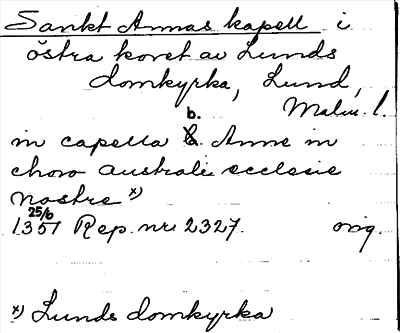 Sankt Annas kapell i
östra koret av Lunds
domkyrka, Lund,
Malm. l.
in capella b. Anne in
choro australi ecclesie
nostre x)
1351 25/6 Rep. nr 2327. orig.
x) Lunds domkyrka